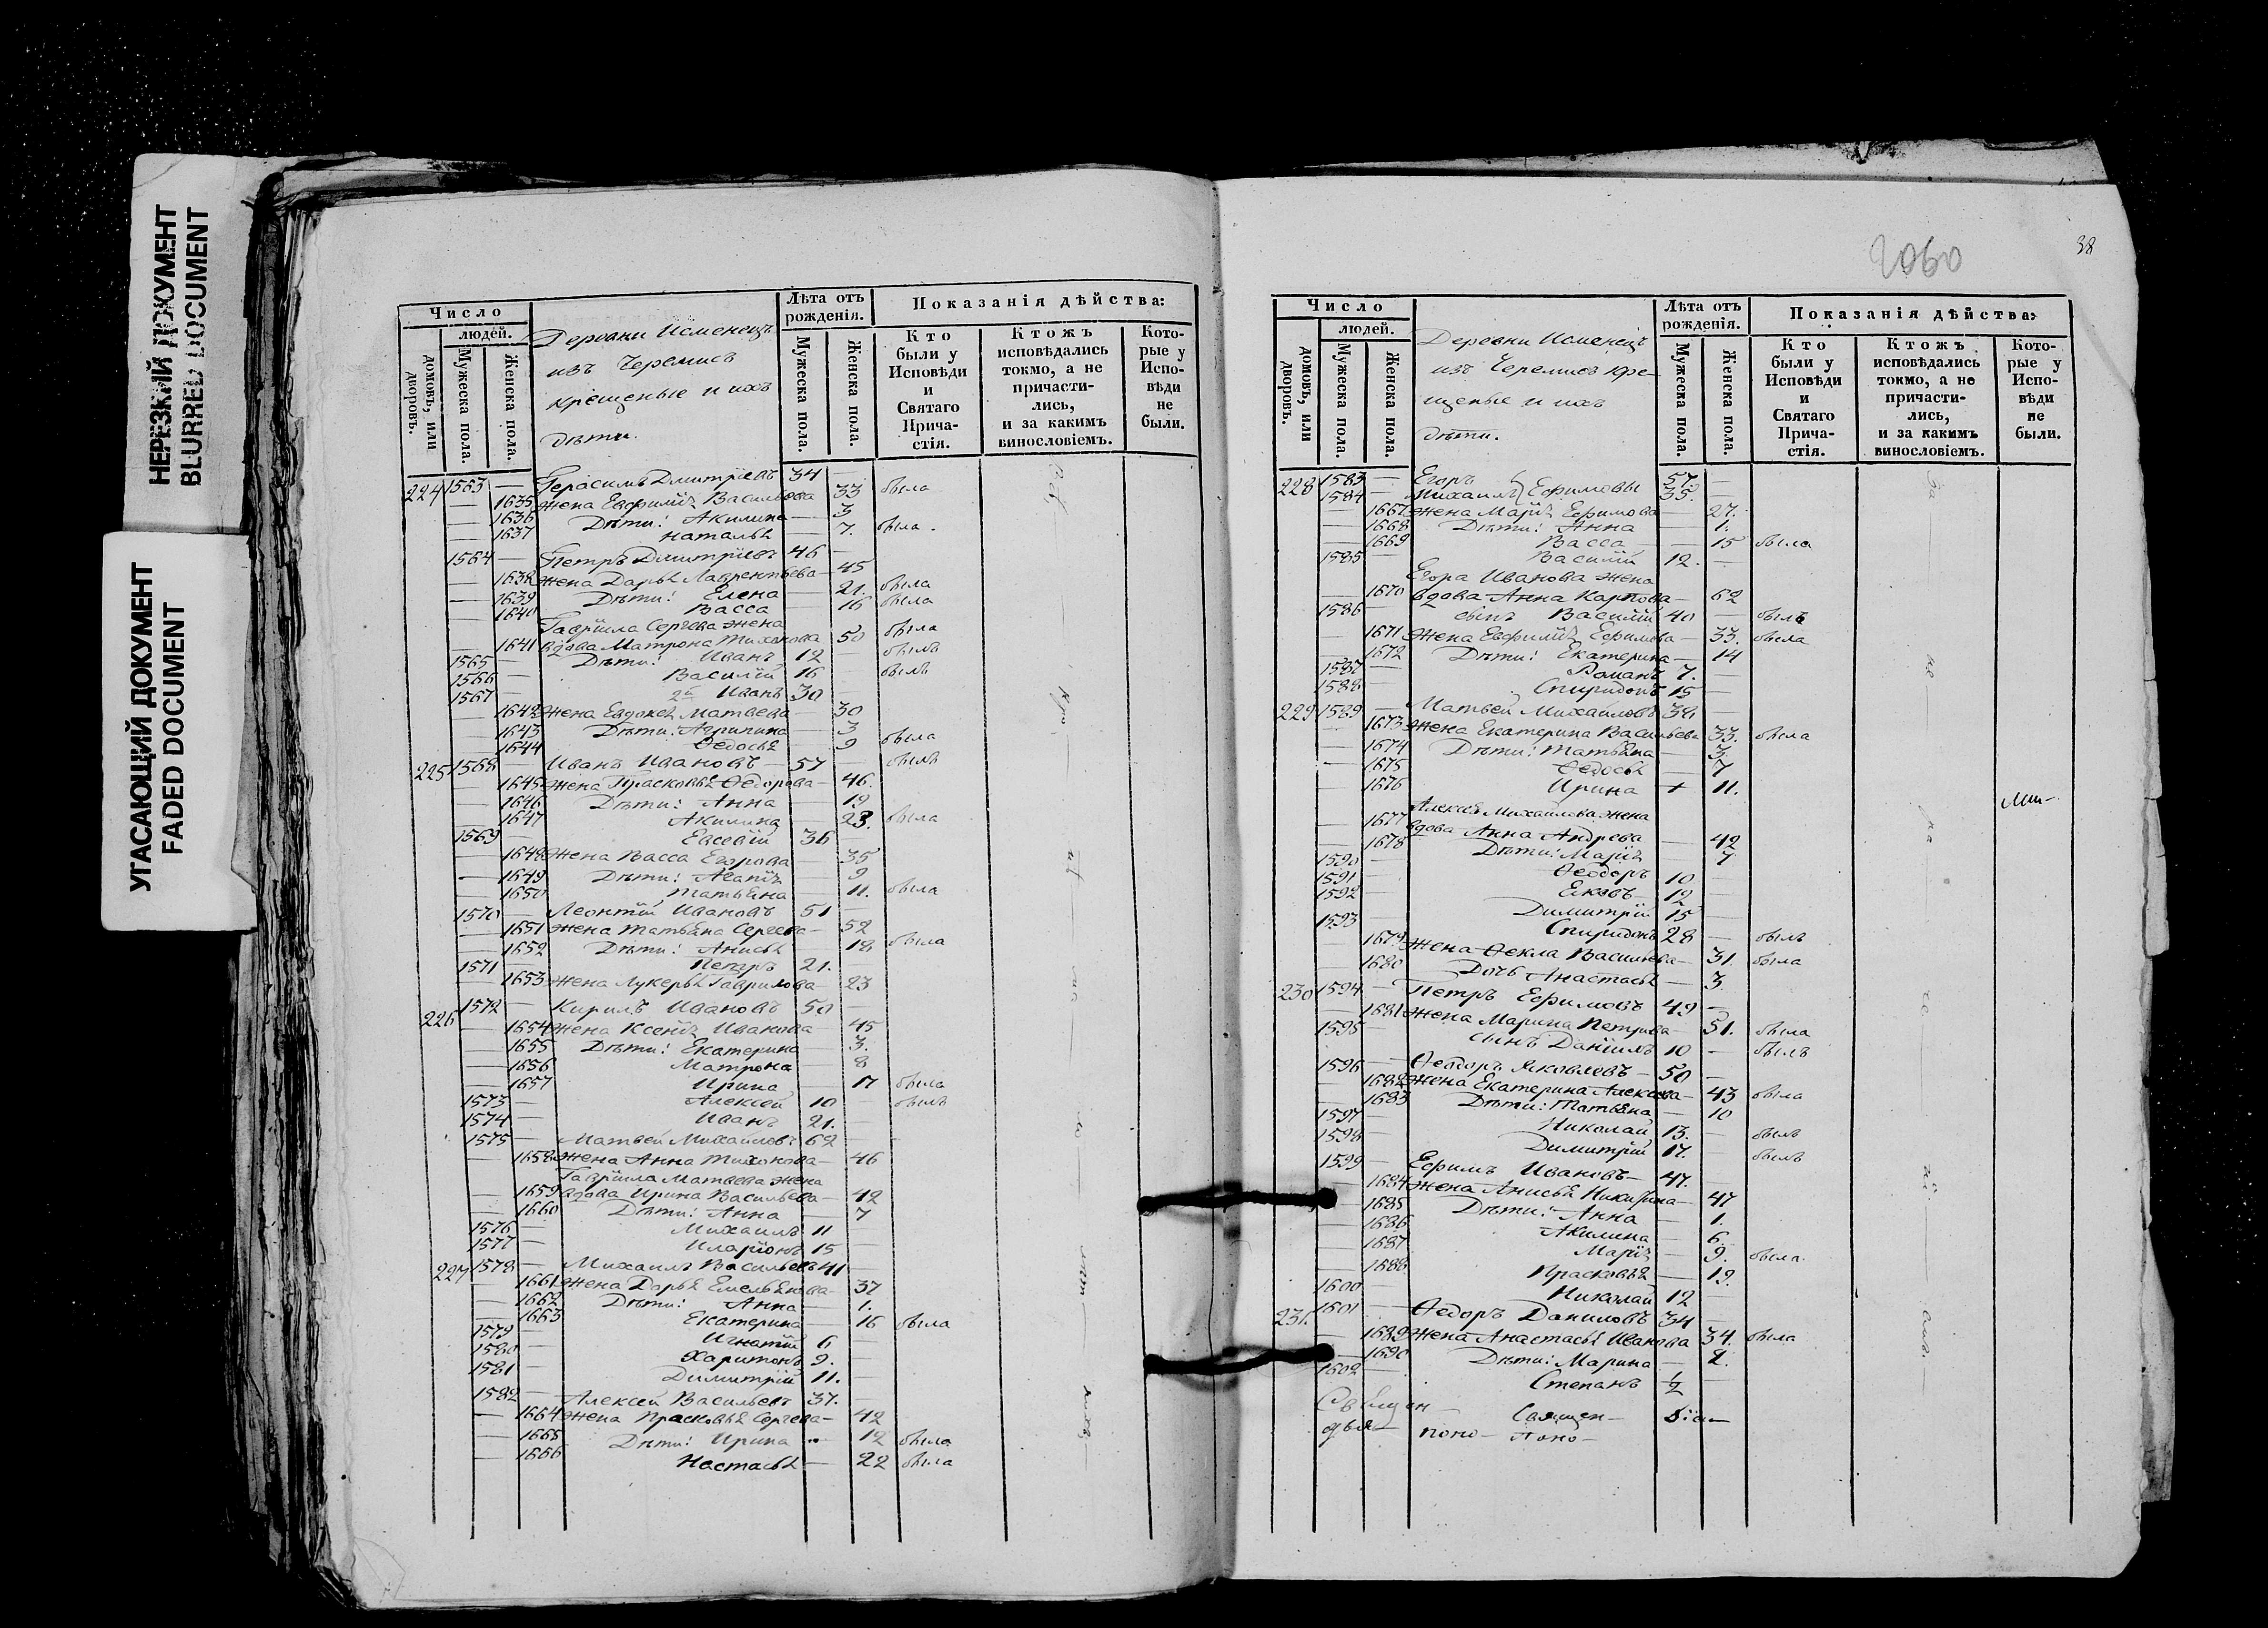 НЕРЕЗКИЙ ДОКУМЕНТ
BLURRED DOCUMENT
УГАСАЮЩИЙ ДОКУМЕНТ
FADED DOCUMENT
Число
людей.
домовъ, или дворовъ.
Мужеска пола.
Женска пола.
Деревни Исменецъ
изъ Черемисъ
крещеные и ихъ
дѣти.
Лѣта отъ рожденія.
Мужеска пола.
Женска пола.
Показанія дѣйства:
Кто были у Исповѣди и Святаго Прича-стія.
Ктожъ исповѣдались токмо, а не причасти-лись, и за какимъ винословіемъ.
Кото-рые у Испо-вѣди не были.
224 1563 — Герасимъ Дмитріевъ 34 —
— 1635 жена Евфимія Васильева 33 была
— 1636 Дѣти: Акилина — 3
— 1637 Наталья — 7. была
1564 — Петръ Дмитріевъ 46 —
— 1638 жена Дарья Лаврентьева — 45
— 1639 Дѣти: Елена — 21. была
— 1640 Васса — 16 была
Гавріила Сергева жена
— 1641 вдова Матрона Тихонова 50 была
1565 — Дѣти: Иванъ 12 — былъ
1566 — Василій 16 — былъ
1567 — 2й Иванъ 30 —
— 1642 жена Евдокея Матвева 30
— 1643 Дѣти: Агрипина — 3
— 1644 Ѳедосья 9 была
225 1568 — Иванъ Ивановъ — 57 — былъ
— 1645 жена Прасковья Ѳедорова — 46.
— 1646 Дѣти: Анна — 19
— 1647 Акилина — 23. была
1569 — Евсевій 36
— 1648 жена Васса Егорова — 35
— 1649 Дѣти: Агапія — 9
— 1650 Татьяна — 11. была
1570 — Леонтій Ивановъ 51
— 1651 жена Татьяна Сергеева — 52
— 1652 Дѣти: Анисья — 18 была
1571 — Петръ 21.
— 1653 жена Лукерья Гаврилова — 23
226 1572 — Кирилъ Ивановъ 50 —
— 1654 жена Ксенія Иванова — 45
— 1655 Дѣти: Екатерина — 3.
— 1656 Матрона — 8
— 1657 Ирина — 17 была
1573 — Алексей 10 — былъ
1574 — Иванъ 21. —
1575 — Матвей Михаиловъ 62 —
— 1658 жена Анна Тихонова — 46
Гавріила Матвева жена
— 1659 вдова Ирина Васильева — 42
— 1660 Дѣти: Анна — 7
1576 — Михаилъ 11
1577 — Иларіонъ 15
227 1578 — Михаилъ Васильевъ 41 —
— 1661 жена Дарья Емельянова — 37
— 1662 Дѣти: Анна — 1.
— 1663 Екатерина — 16 была
1579 — Игнатій 6
1580 — Харитонъ 9. —
1581 — Димитрій 11. —
1582 — Алексей Васильевъ 37. —
— 1664 жена Прасковья Сергева — 42
— 1665 Дѣти: Ирина — 12 была
— 1666 Настасья — 22 была
2060
38
Число
людей.
домовъ, или дворовъ.
Мужеска пола.
Женска пола.
Деревни Исменецъ
изъ Черемисъ кре-
щеные и ихъ
дѣти.
Лѣта отъ рожденія.
Мужеска пола.
Женска пола.
Показанія дѣйства:
Кто были у Исповѣди и Святаго Прича-стія.
Ктожъ исповѣдались токмо, а не причасти-лись, и за какимъ винословіемъ.
Кото-рые у Испо-вѣди не были.
228 1583 — Егоръ 57. —
1584 — Михаилъ } Ефимовы 35. —
— 1667 жена Марія Ефимова — 27.
— 1668 Дѣти: Анна — 1.
— 1669 Васса — 15 была
1585 — Василій 12. —
Егора Иванова жена
— 1670 вдова Анна Карпова — 62
1586 — сынъ Василій 40 — былъ
— 1671 жена Евфимія Ефимова — 33. была
— 1672 Дѣти: Екатерина — 14
1587 — Романъ 7. —
1588 — Спиридонъ 15 —
229 1589 — Матвей Михаиловъ 38. —
— 1673 жена Екатерина Васильева 33. была
— 1674 Дѣти: Татьяна — 3.
— 1675 Ѳедосья — 7
— 1676 Ирина + 11.
Алексея Михаилова жена
— 1677 вдова Анна Андрева — 42
— 1678 Дѣти: Марія — 7
1590 — Ѳеодоръ 10 —
1591 — Яковъ 12 —
1592 — Димитрій 15 —
1593 — Спиридонъ 28 — былъ
— 1679 жена Ѳекла Васильева — 31. была
— 1680 дочь Анастасья — 3.
230 1594 — Петръ Ефимовъ 49 —
— 1681 жена Марина Петрова — 51. была
1595 — сынъ Даніилъ 10 — былъ
1596 — Ѳеодоръ Яковлевъ — 50 —
— 1682 жена Екатерина Алексева — 43 была
— 1683 Дѣти: Татьяна — 10
1597 — Николай 13. — былъ
1598 — Димитрій 17. — былъ
1599 — Ефимъ Ивановъ — 47.
— 1684 жена Анисья Никитина — 47
— 1685 Дѣти: Анна — 1.
— 1686 Акилина — 6
— 1687 Марія — 9. была
— 1688 Прасковья — 19.
1600 — Николай 12 —
231. 1601 — Ѳедоръ Даниловъ 34 —
— 1689 жена Анастасья Иванова 34. была
— 1690 Дѣти: Марина — 2.
1602 — Степанъ ½ —
Священ— Священ— Діа—
поно— поно—